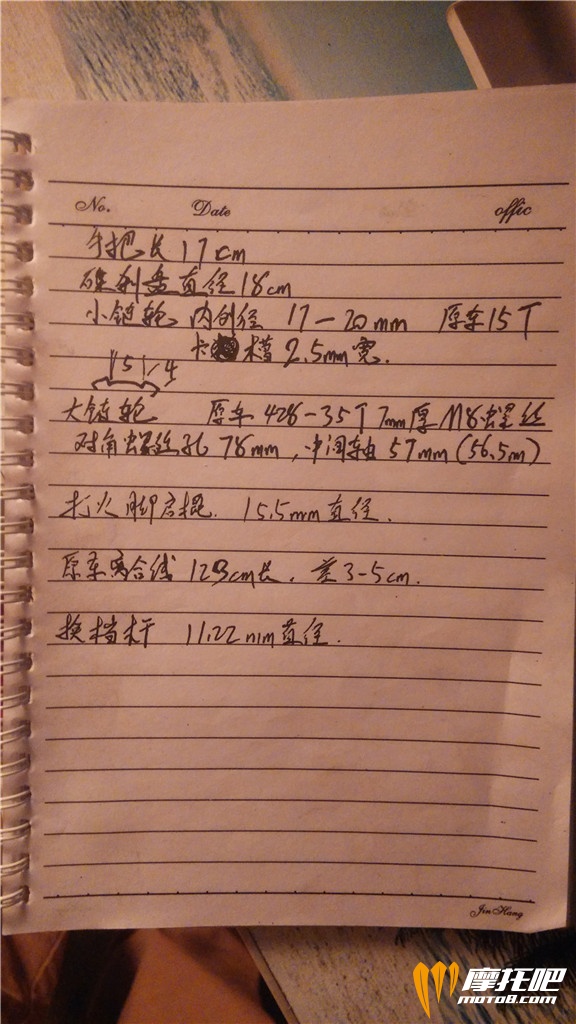 No. Date offic
手把长17cm
碟刹盘直径18cm
小链轮 内创径 17-20mm 原车15T
卡槽2.5mm宽.
大链轮 原车428-35T 7mm厚 M8螺丝
对角螺丝孔78mm,中间轴57mm(56.5m)
打火脚启棍. 15.5mm直径.
原车离合线 123cm长. 差3-5cm.
换档杆 11.22mm直径.
JinHang
摩托吧
MOTO8.COM